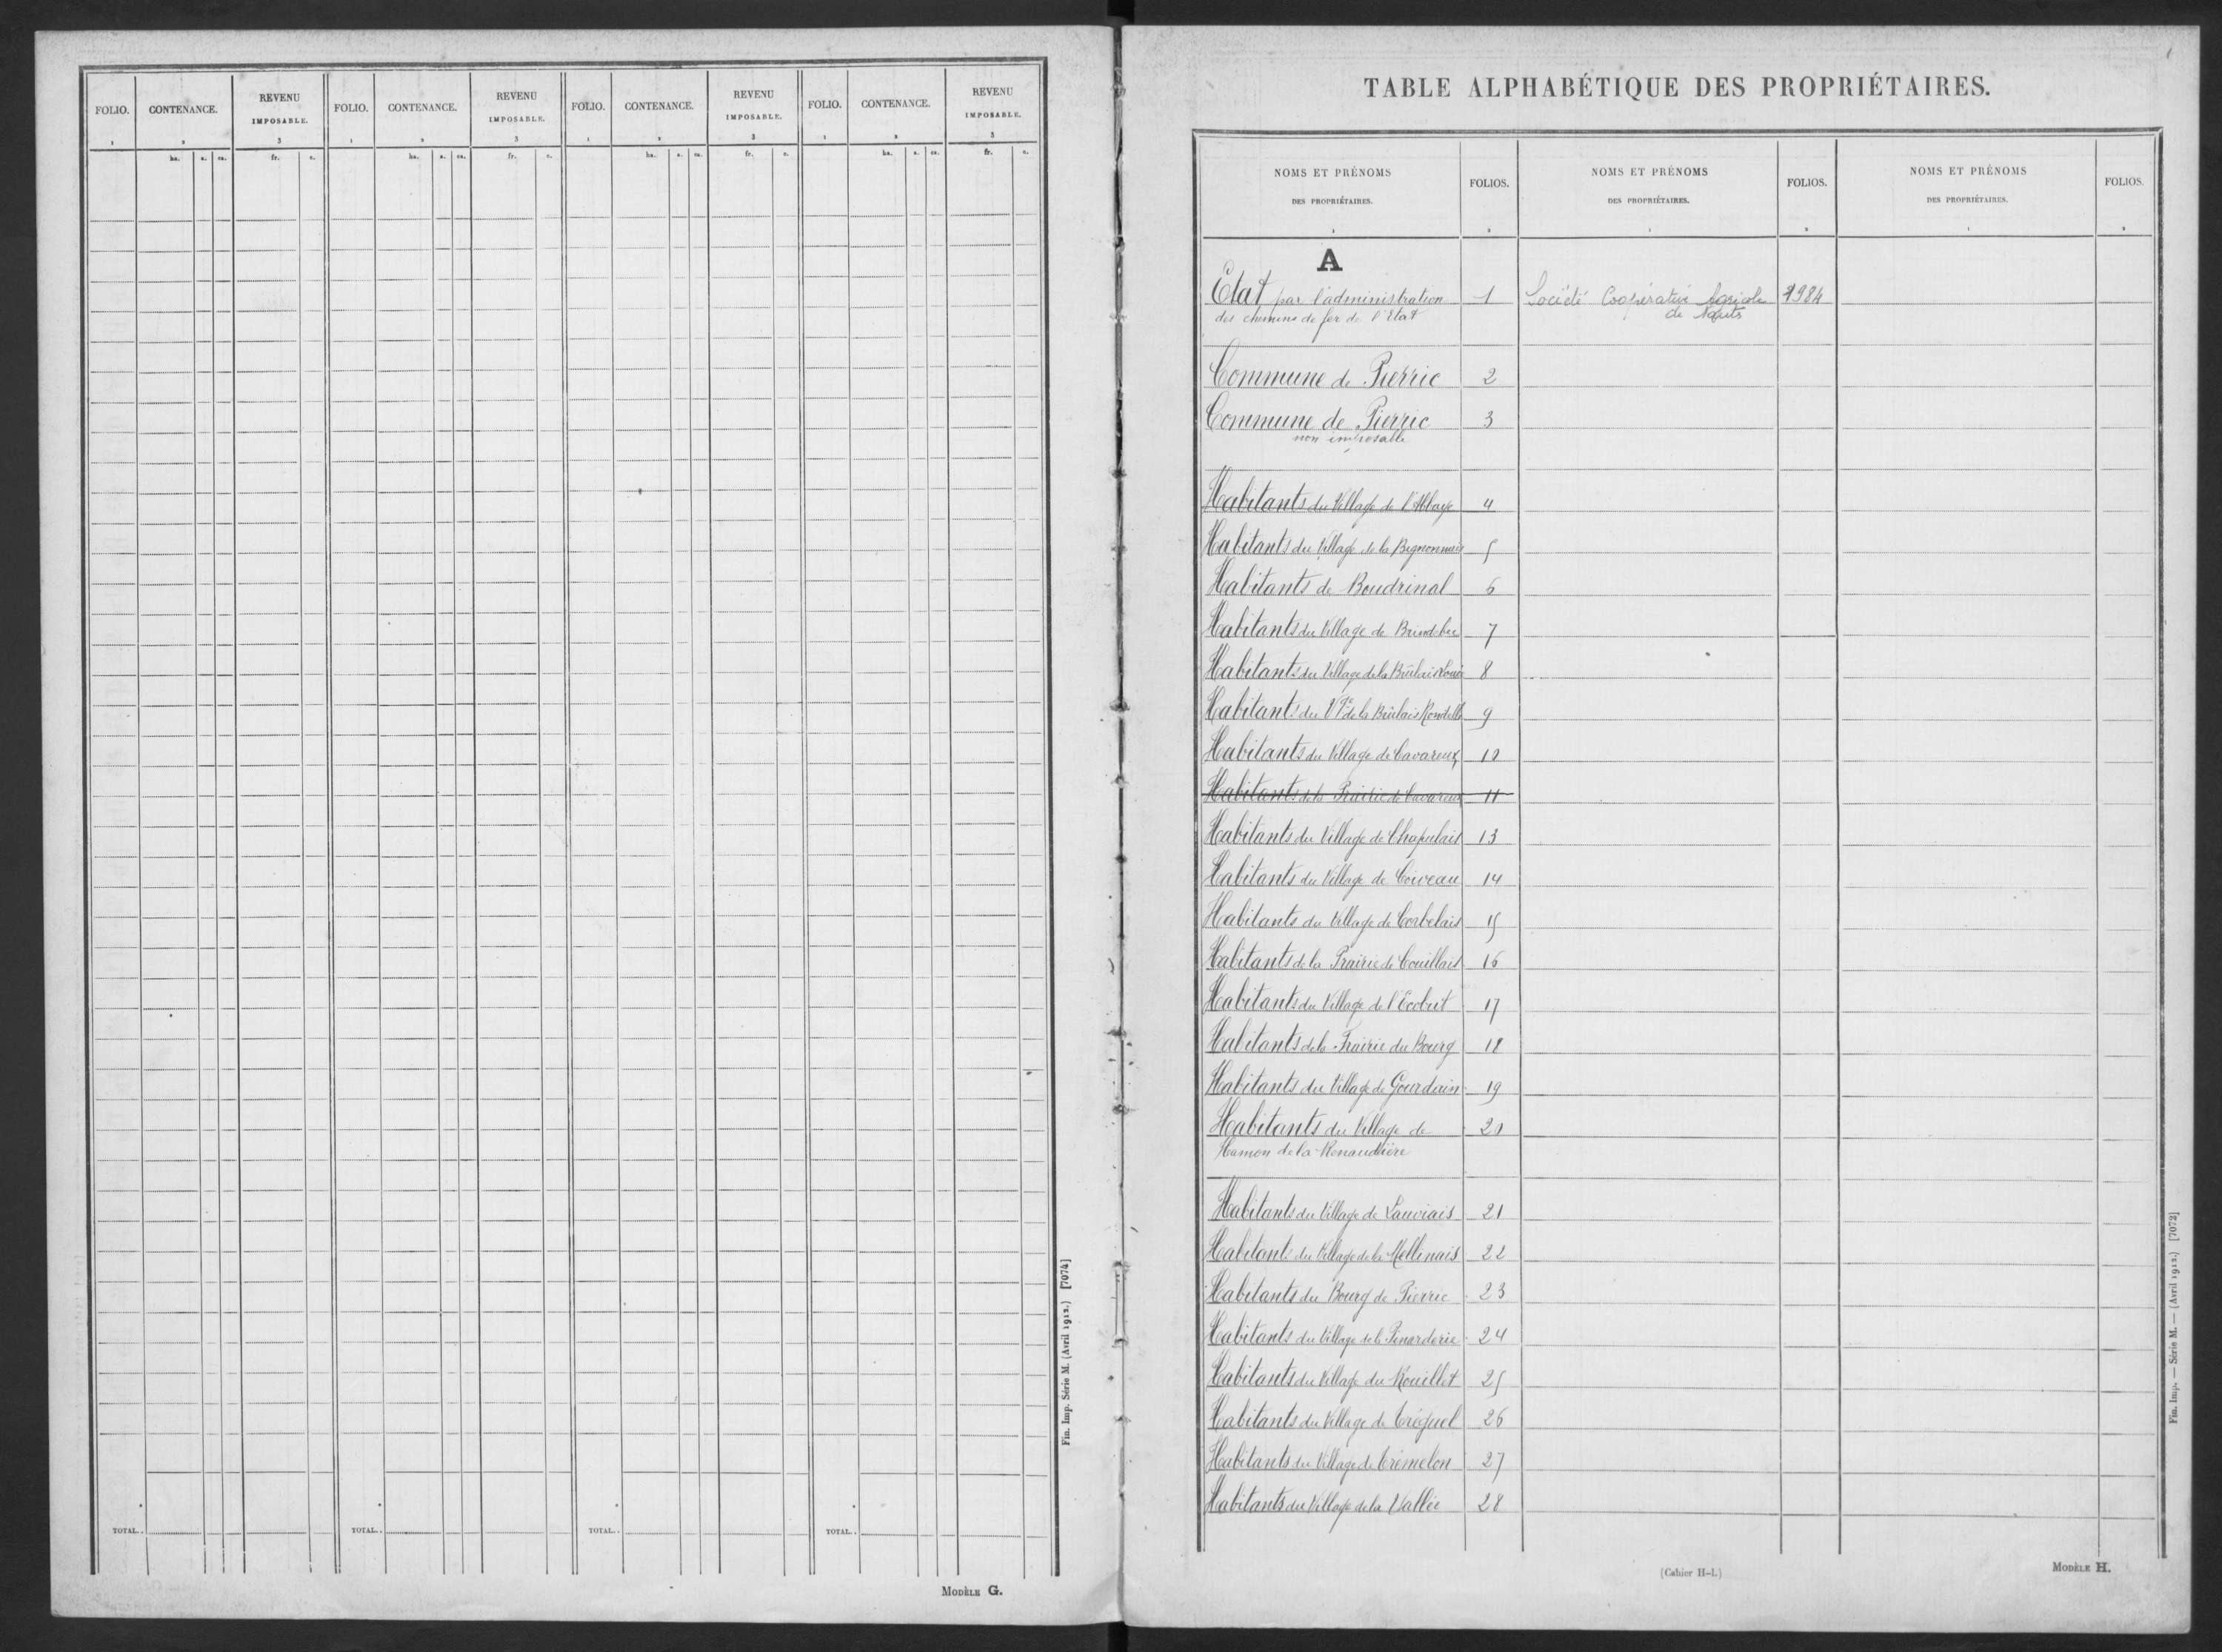 FOLIO. CONTENANCE. REVENU IMPOSABLE. FOLIO. CONTENANCE. REVENU IMPOSABLE. FOLIO. CONTENANCE. REVENU IMPOSABLE. FOLIO. CONTENANCE. REVENU IMPOSABLE.
1 2 3 1 2 3 1 2 3 1 2 3
ha. a. ca. fr. c. ha. a. ca. fr. c. ha. a. ca. fr. c. ha. a. ca. fr. c.
TOTAL.. TOTAL.. TOTAL.. TOTAL..
Fin. Imp. Série M. (Avril 1912.) [7074]
MODÈLE G.
TABLE ALPHABÉTIQUE DES PROPRIÉTAIRES.
NOMS ET PRÉNOMS FOLIOS. NOMS ET PRÉNOMS FOLIOS. NOMS ET PRÉNOMS FOLIOS.
DES PROPRIÉTAIRES. DES PROPRIÉTAIRES. DES PROPRIÉTAIRES.
1 2 1 2 1 2
A
Etat par l'administration 1 Société Coopérative Agricole 1984
des chemins de fer de l'Etat de
Commune de Pierric 2
Commune de Pierric 3
non imposable
Habitants du Village de l'Abbaye 4
Habitants du Village de la Bignonnais 5
Habitants de Boudrinal 6
Habitants du Village de Brindebec 7
Habitants du Village de la Brûlais 8
Habitants du Vge de la Brûlais Rondelle 9
Habitants du Village de Cavareux 10
Habitants de la Prairie de Cavareux 11
Habitants du Village de Chapelais 13
Habitants du Village de Coiveau 14
Habitants du Village de Corbelais 15
Habitants de la Prairie de Couillais 16
Habitants du Village de l'Ecobut 17
Habitants de la Frairie du Bourg 18
Habitants du Village de Gourdain 19
Habitants du Village de 20
Hamon de la Renaudière
Habitants du Village de Lauviais 21
Habitants du Village de la Mellinais 22
Habitants du Bourg de Pierric 23
Habitants du Village de la Penarderie 24
Habitants du Village du Rouillet 25
Habitants du Village de Tréguel 26
Habitants du Village de Trémelon 27
Habitants du Village de la Vallée 28
Fin. Imp. — Série M. — (Avril 1912.) [7072]
(Cahier H-I.)
MODÈLE H.